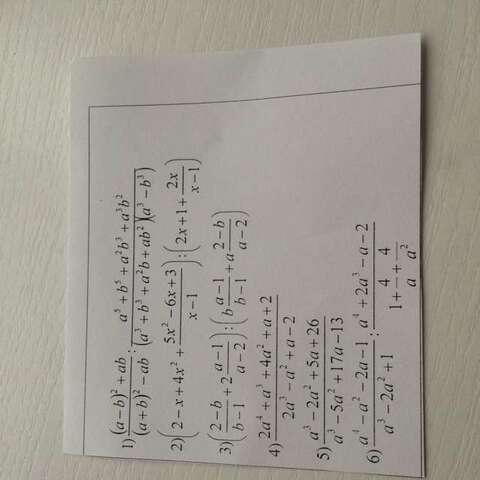 1) \frac{(a-b)^2+ab}{(a+b)^2-ab} : \frac{a^5+b^5+a^2b^3+a^3b^2}{(a^3+b^3+a^2b+ab^2)(a^3-b^3)}
2) \left(2-x+4x^2+\frac{5x^2-6x+3}{x-1}\right) : \left(2x+1+\frac{2x}{x-1}\right)
3) \left(\frac{2-b}{b-1}+2\frac{a-1}{a-2}\right) : \left(b\frac{a-1}{b-1}+a\frac{2-b}{a-2}\right)
4) \frac{2a^4+a^3+4a^2+a+2}{2a^3-a^2+a-2}
5) \frac{a^3-2a^2+5a+26}{a^3-5a^2+17a-13}
6) \frac{a^4-a^2-2a-1}{a^3-2a^2+1} : \frac{a^4+2a^3-a-2}{1+\frac{4}{a}+\frac{4}{a^2}}